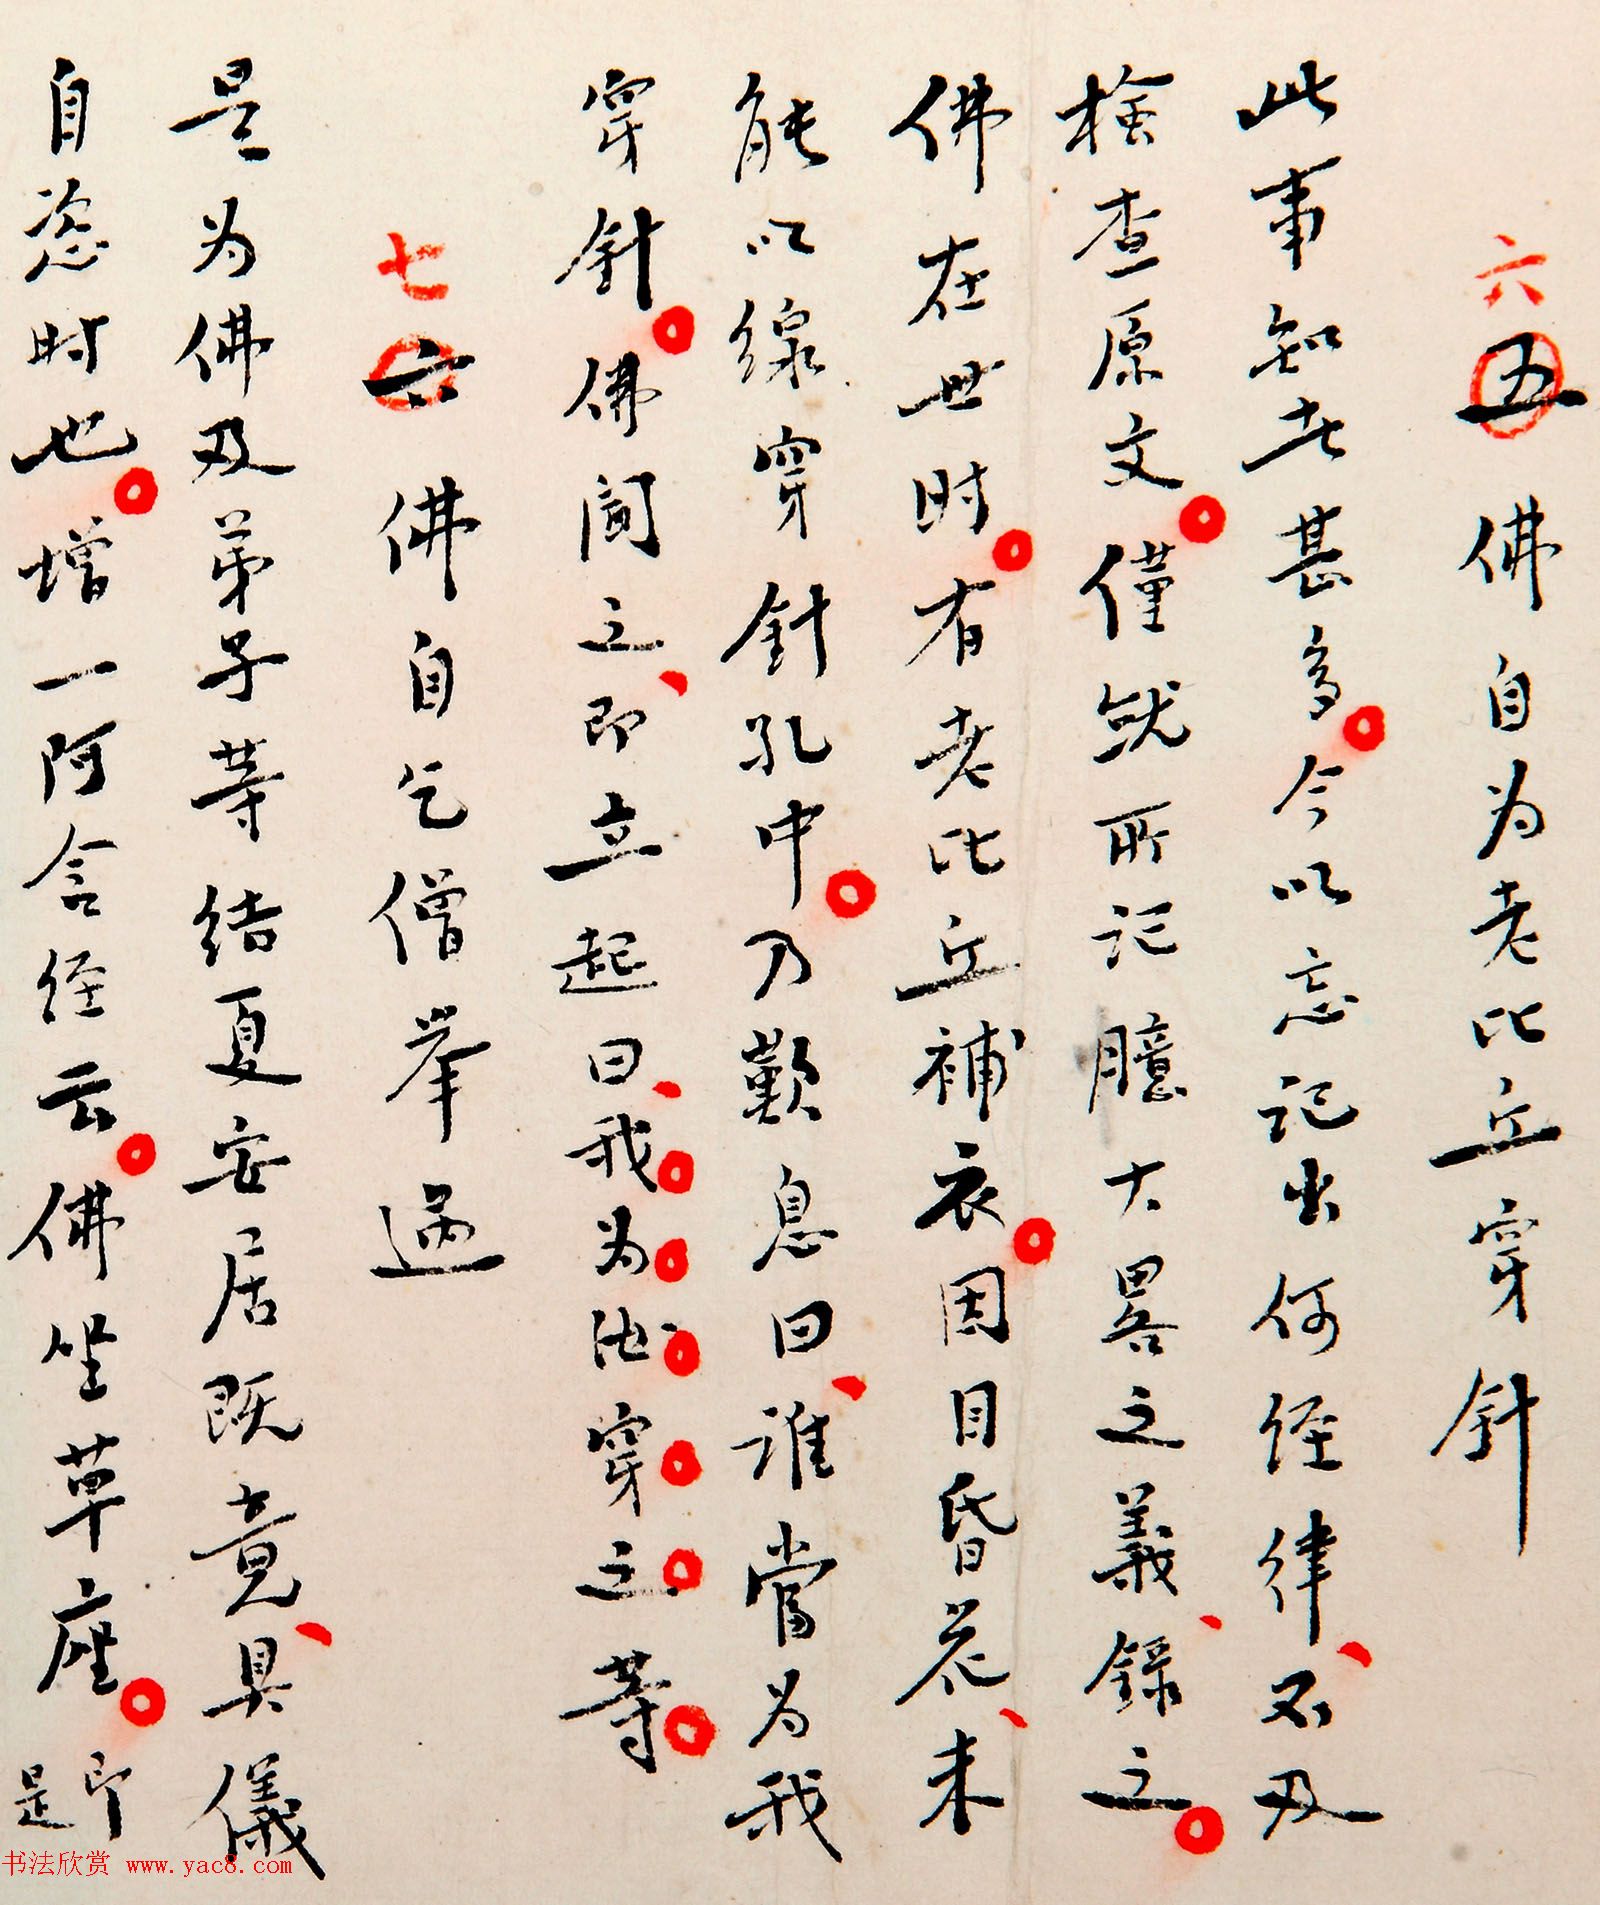 六
五 佛自为老比丘穿针
此事知者甚多。今以忘记出何经律、不及
检查原文。仅就所记臆大畧之義、錄之。
佛在世时。有老比丘補衣。因目昏花、未
能以線穿针孔中。乃歎息曰、谁當为我
穿针。佛闻之、即立起曰、我为汝穿之等。
七
六 佛自乞僧举过
是为佛及弟子等结夏安居既竟、具儀
自恣时也。增一阿含经云。佛坐草座。即
是
书法欣赏 www.yac8.com